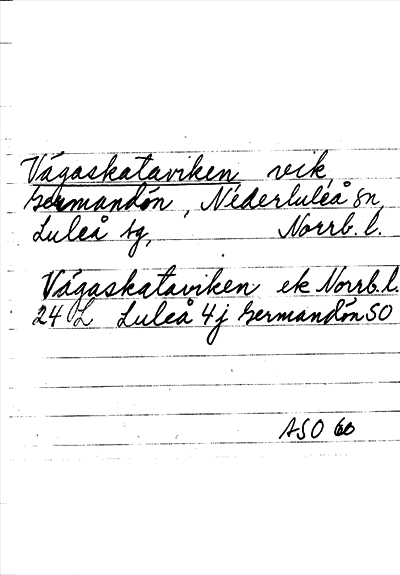 Vågaskataviken, vik,
Germandön, Nederluleå sn,
Luleå tg, Norrb. l.
Vågaskataviken ek Norrb. l.
24 L Luleå 4j Germandön SO
ASO 60